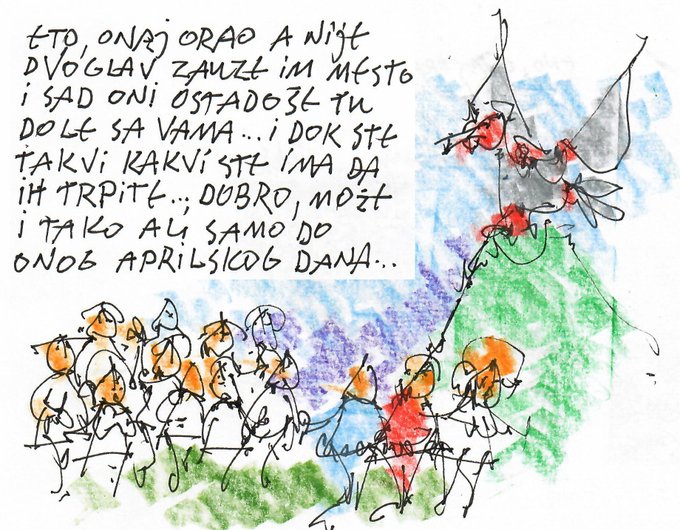 ETO, ONAJ ORAO A NIJE
DVOGLAV ZAUZE IM MESTO
I SAD ONI OSTADOŠE TU
DOLE SA VAMA... I DOK STE
TAKVI KAKVI STE IMA DA
IH TRPITE... DOBRO, MOŽE
I TAKO ALI SAMO DO
ONOG APRILSKOG DANA...